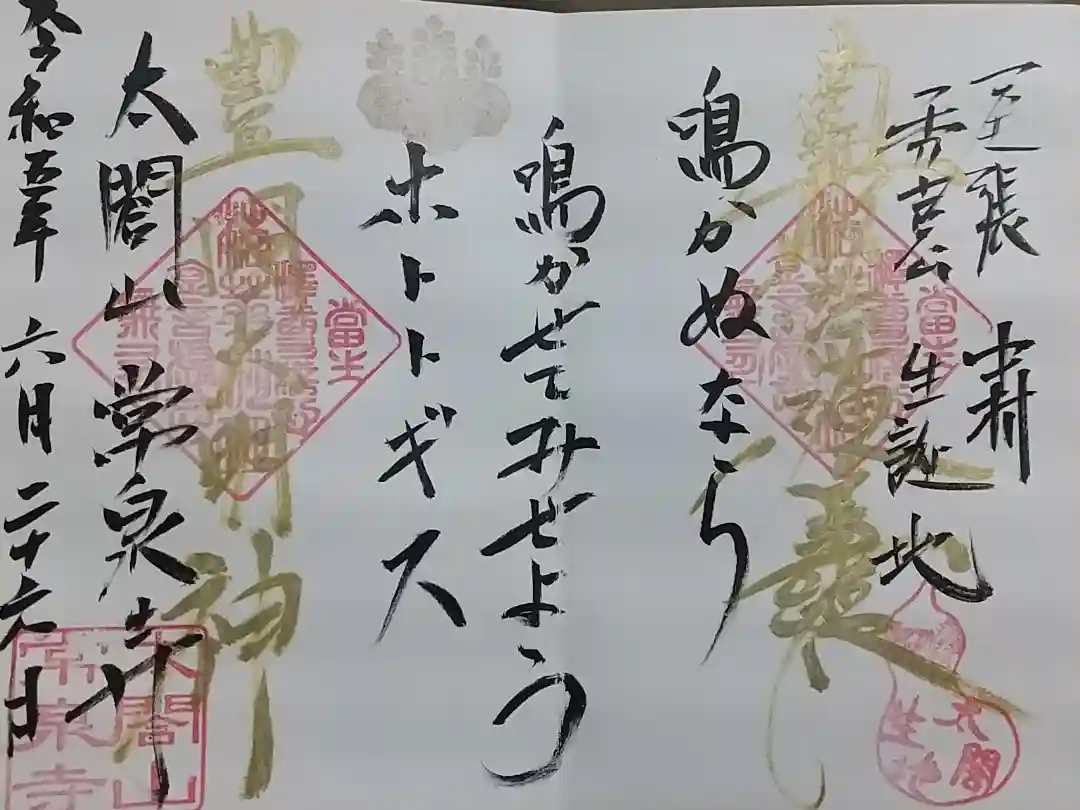 尾張 中村
秀吉公 生誕地
南無妙法蓮華経
鳴かぬなら
鳴かせてみせよう
ホトトギス
豊国大明神
太閤山 常泉寺
令和五年 六月 二十六日
太閤
生地
太閤山
常泉寺